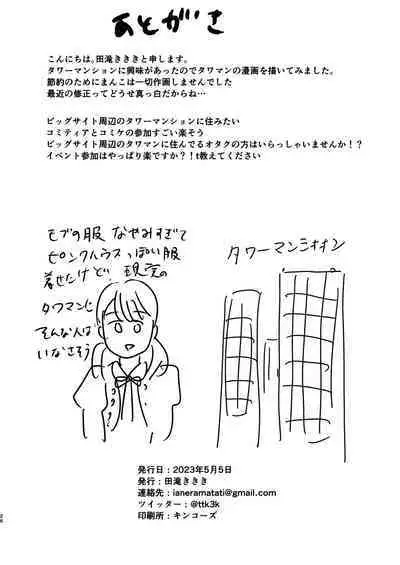 あとがき
こんにちは。田滝きききと申します。
タワーマンションに興味があったのでタワマンの漫画を描いてみました。
節約のためにまんこは一切作画しませんでした
最近の修正ってどうせ真っ白だからね…
ビッグサイト周辺のタワーマンションに住みたい
コミティアとコミケの参加すごい楽そう
ビッグサイト周辺のタワマンに住んでるオタクの方はいらっしゃいませんか！？
イベント参加はやっぱり楽ですか？！t教えてください
モブの服 なやみすぎて
ピンクハウスっぽい服
着せたけど、現実の
タワマンに
そんな人は
いなさそう
タワーマンション
発行日：2023年5月5日
発行：田滝ききき
連絡先：ianeramatati@gmail.com
ツイッター：@ttk3k
印刷所：キンコーズ